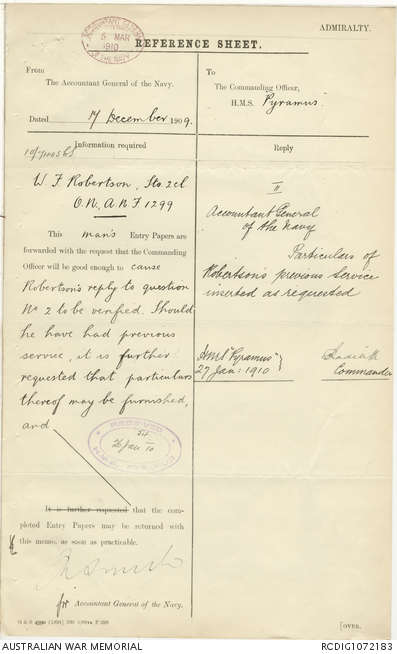 ADMIRALTY.
5 MAR
1910
REFERENCE SHEET.
From
The Accountant General of the Navy.
Dated 17 December 1909.
To
The Commanding Officer,
H.M.S. Pyramus
Information required
W F Robertson, Sto 2 cl
O.N. A.N.F 1299
This man's Entry Papers are
forwarded with the request that the Commanding
Officer will be good enough to cause
Robertson's reply to question
No 2 to be verified. Should
he have had previous
service, it is further
requested that particulars
thereof may be furnished,
and
RECEIVED
26 Jan 10
It is further requested that the com-
pleted Entry Papers may be returned with
this memo, as soon as practicable.
for Accountant General of the Navy.
Reply
II
Accountant General
of the Navy
Particulars of
Robertson's previous service
inserted as requested
HMS "Pyramus"
27 Jan: 1910
Commander
[OVER.
AUSTRALIAN WAR MEMORIAL
RCDIG1072183